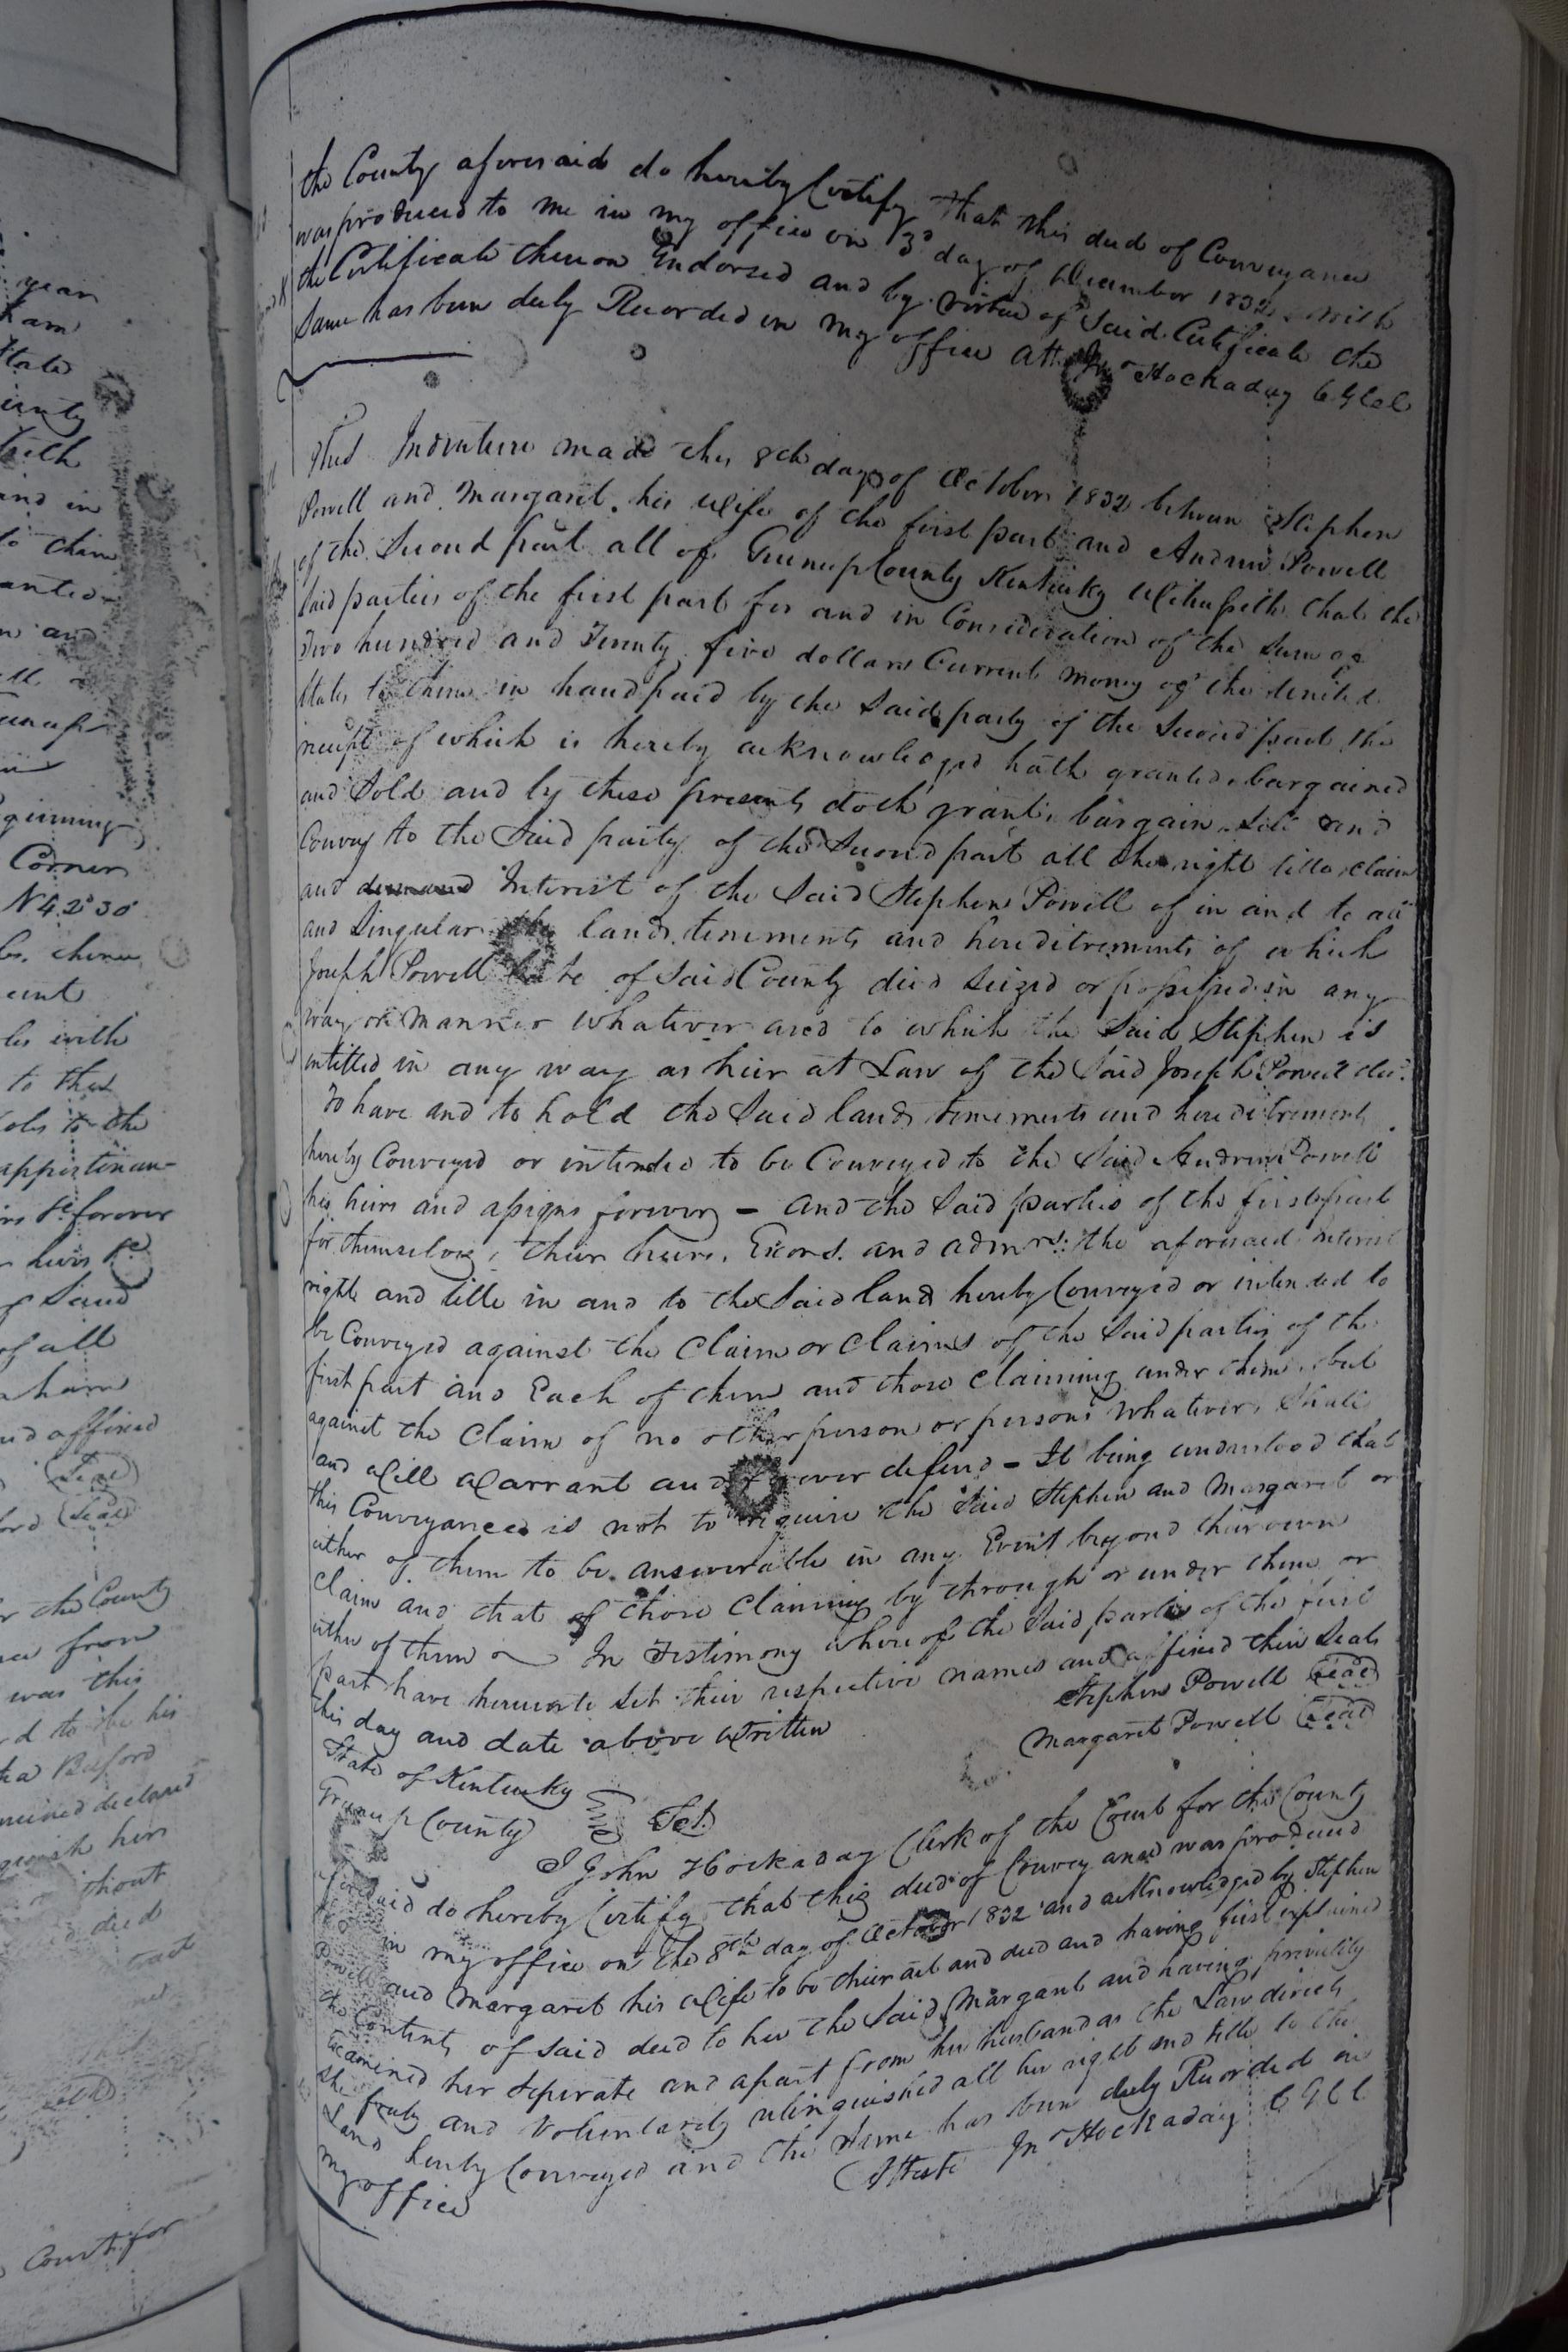 year
ham
State
county
with
and in
to them
anted
n and
unup
ginning
Corner
N 42° 30'
thence
les with
to this
oles to the
appertinan-
irs &c forever
heirs &c
of Said
of all
nd affixed
Seal
ford Seal
r the County
was this
d to be his
ha Buford
amined declared
quish her
thout
deed
Court for
the County aforesaid do hereby Certify that this deed of Conveyance
was produced to me in my office on 3d day of December 1832 with
the Certificate thereon Endorsed and by virtue of Said Certificate the
Same has been duly Recorded in my office Att Jno Hockaday C G C C
This Indenture made this 8th day of October 1832 between Stephen
Powell and Margaret his wife of the first part and Andrew Powell
of the Second part all of Greenup County Kentucky Witnesseth that the
Said parties of the first part for and in Consideration of the Sum of
two hundred and Twenty five dollars Current money of the United
States to them in hand paid by the Said party of the Second part the
receipt of which is hereby acknowledged hath granted bargained
and Sold and by these presents doth grant, bargain Sell and
Convey to the Said party of the Second part all the right title claim
and demand Interest of the Said Stephen Powell of in and to all
and Singular the lands tenements and hereditrements of which
Joseph Powell late of Said County died Seized or possessed in any
way or manner whatever and to which the Said Stephen is
entitled in any way as heir at Law of the Said Joseph Powell decd
To have and to hold the Said lands tenements and hereditrements
hereby Conveyed or intended to be Conveyed to the Said Andrew Powell
his heirs and assigns forever – and the Said parties of the first part
for themselves, their heirs, Exors. and admrs: the aforesaid interest
right and title in and to the Said land hereby Conveyed or intended to
be Conveyed against the Claim or Claims of the Said parties of the
first part and Each of them and those Claiming under them, but
against the Claim of no other person or persons whatever, Shall
and Will Warrant and forever defend – It being understood that
this Conveyance is not to require the Said Stephen and Margaret or
either of them to be answerable in any Event beyond their own
Claim and that of those Claiming by through or under them or
either of them In Testimony whereof the Said parties of the first
part have hereunto Set their respective names and affixed their Seals
this day and date above Written Stephen Powell Seal
Margaret Powell Seal
State of Kentucky
Greenup County Sct.
I John Hockaday Clerk of the Court for the County
aforesaid do hereby Certify that this deed of Conveyance was produced
in my office on the 8th day of October 1832 and acknowledged by Stephen
Powell and Margaret his Wife to be their act and deed and having first explained
the Contents of said deed to her the Said Margaret and having privately
Examined her Seperate and apart from her husband as the Law directs
She freely and Voluntarily relinquished all her right and title to the
Land hereby Conveyed and the Same has been duly Recorded in
my office Atteste Jno Hockaday C G C C